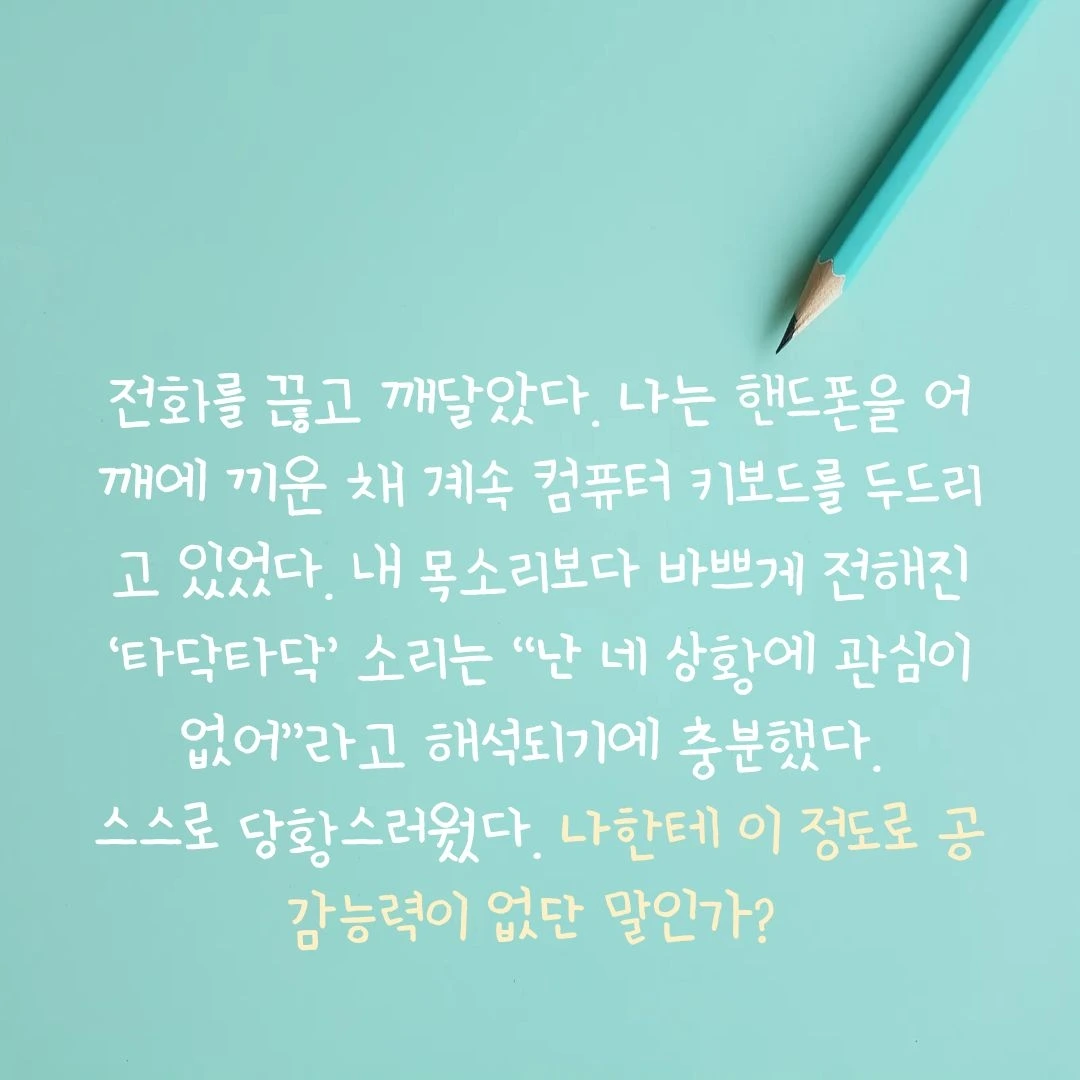 전화를 끊고 깨달았다. 나는 핸드폰을 어
깨에 끼운 채 계속 컴퓨터 키보드를 두드리
고 있었다. 내 목소리보다 바쁘게 전해진
‘타닥타닥’ 소리는 “난 네 상황에 관심이
없어”라고 해석되기에 충분했다.
스스로 당황스러웠다. 나한테 이 정도로 공
감능력이 없단 말인가?